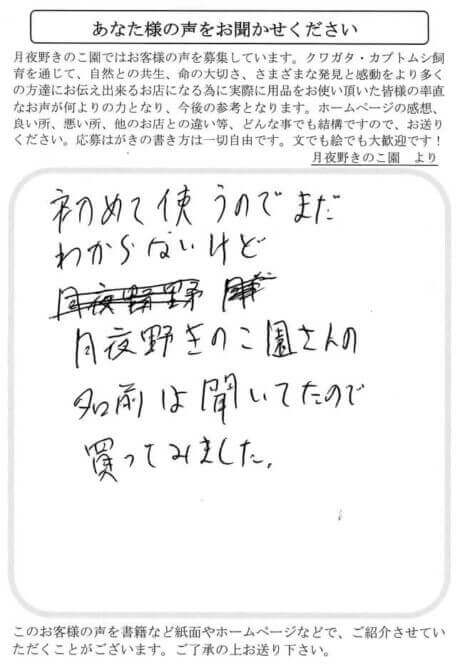 あなた様の声をお聞かせください
月夜野きのこ園ではお客様の声を募集しています。クワガタ・カブトムシ飼
育を通じて、自然との共生、命の大切さ、さまざまな発見と感動をより多く
の方達にお伝え出来るお店になる為に実際に用品をお使い頂いた皆様の率直
なお声が何よりの力となり、今後の参考となります。ホームページの感想、
良い所、悪い所、他のお店との違い等、どんな事でも結構ですので、お送り
ください。応募はがきの書き方は一切自由です。文でも絵でも大歓迎です！
月夜野きのこ園　より
初めて使うのでまだ
わからないけど
月夜野きのこ園さんの
名前は聞いてたので
買ってみました。
このお客様の声を書籍など紙面やホームページなどで、ご紹介させてい
ただくことがございます。ご了承の上お送り下さい。